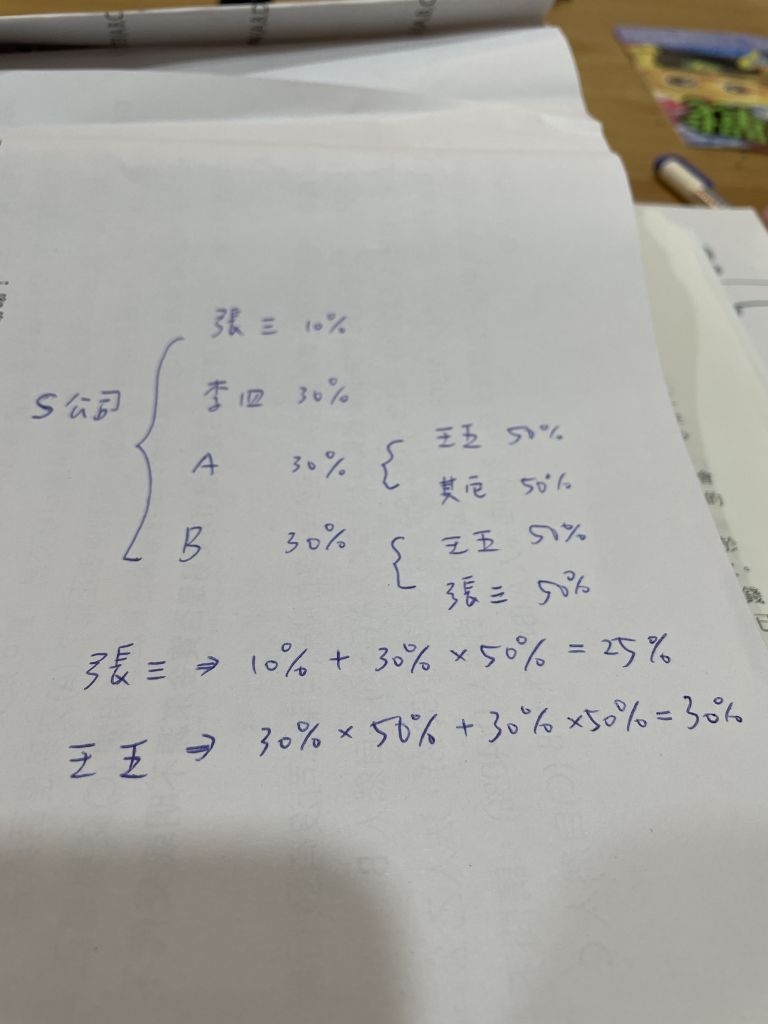 張三 10%
S公司
李四 30%
A 30%
王五 50%
其它 50%
B 30%
王五 50%
張三 50%
張三 ⇒ 10% + 30% × 50% = 25%
王五 ⇒ 30% × 50% + 30% × 50% = 30%